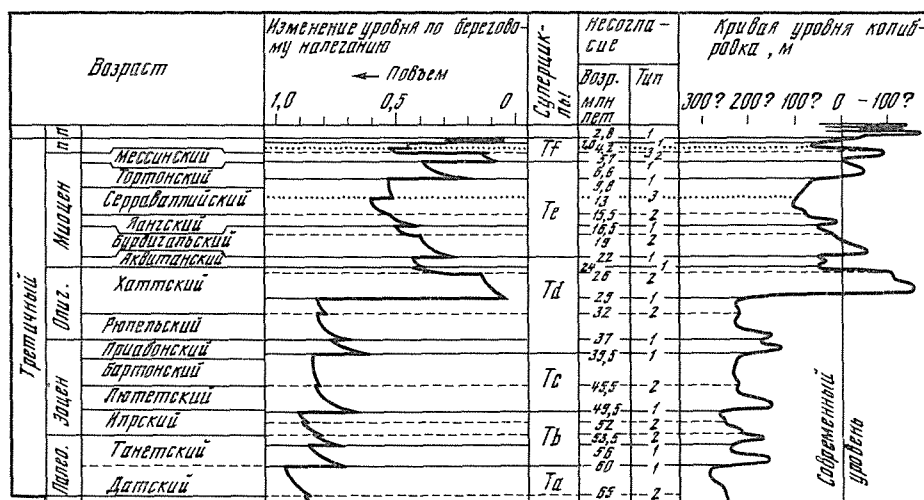 Возраст
Изменение уровня по берегово-
му налеганию
← Подъем
1,0 0,5 0
Суперцик-
лы
Несогла-
сие
Возр.
млн
лет
Тип
Кривая уровня калиб-
радка, м
300? 200? 100? 0 -100?
Третичный
П
Миоцен
Олиг.
Эоцен
Палео.
Мессинский
Тортонский
Серравалийский
Лангский
Бурдигальский
Аквитанский
Хаттский
Рюпельский
Приабонский
Бартонский
Лютетский
Ипрский
Танетский
Датский
Tf
Te
Td
Tc
Tb
Ta
2,8 1
4,2
6,6 1
9,8 1
13 3
15,5 2
16,5 1
19 2
22 1
24 1
26 2
29 1
32 2
37 1
39,5 1
45,5 2
49,5 1
52 2
53,5 2
56 1
60 1
65 2
Современный
уровень